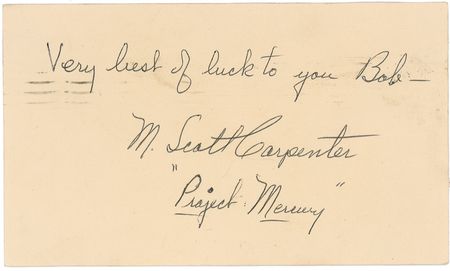 Very best of luck to you Bob—
M. Scott Carpenter
"Project Mercury"